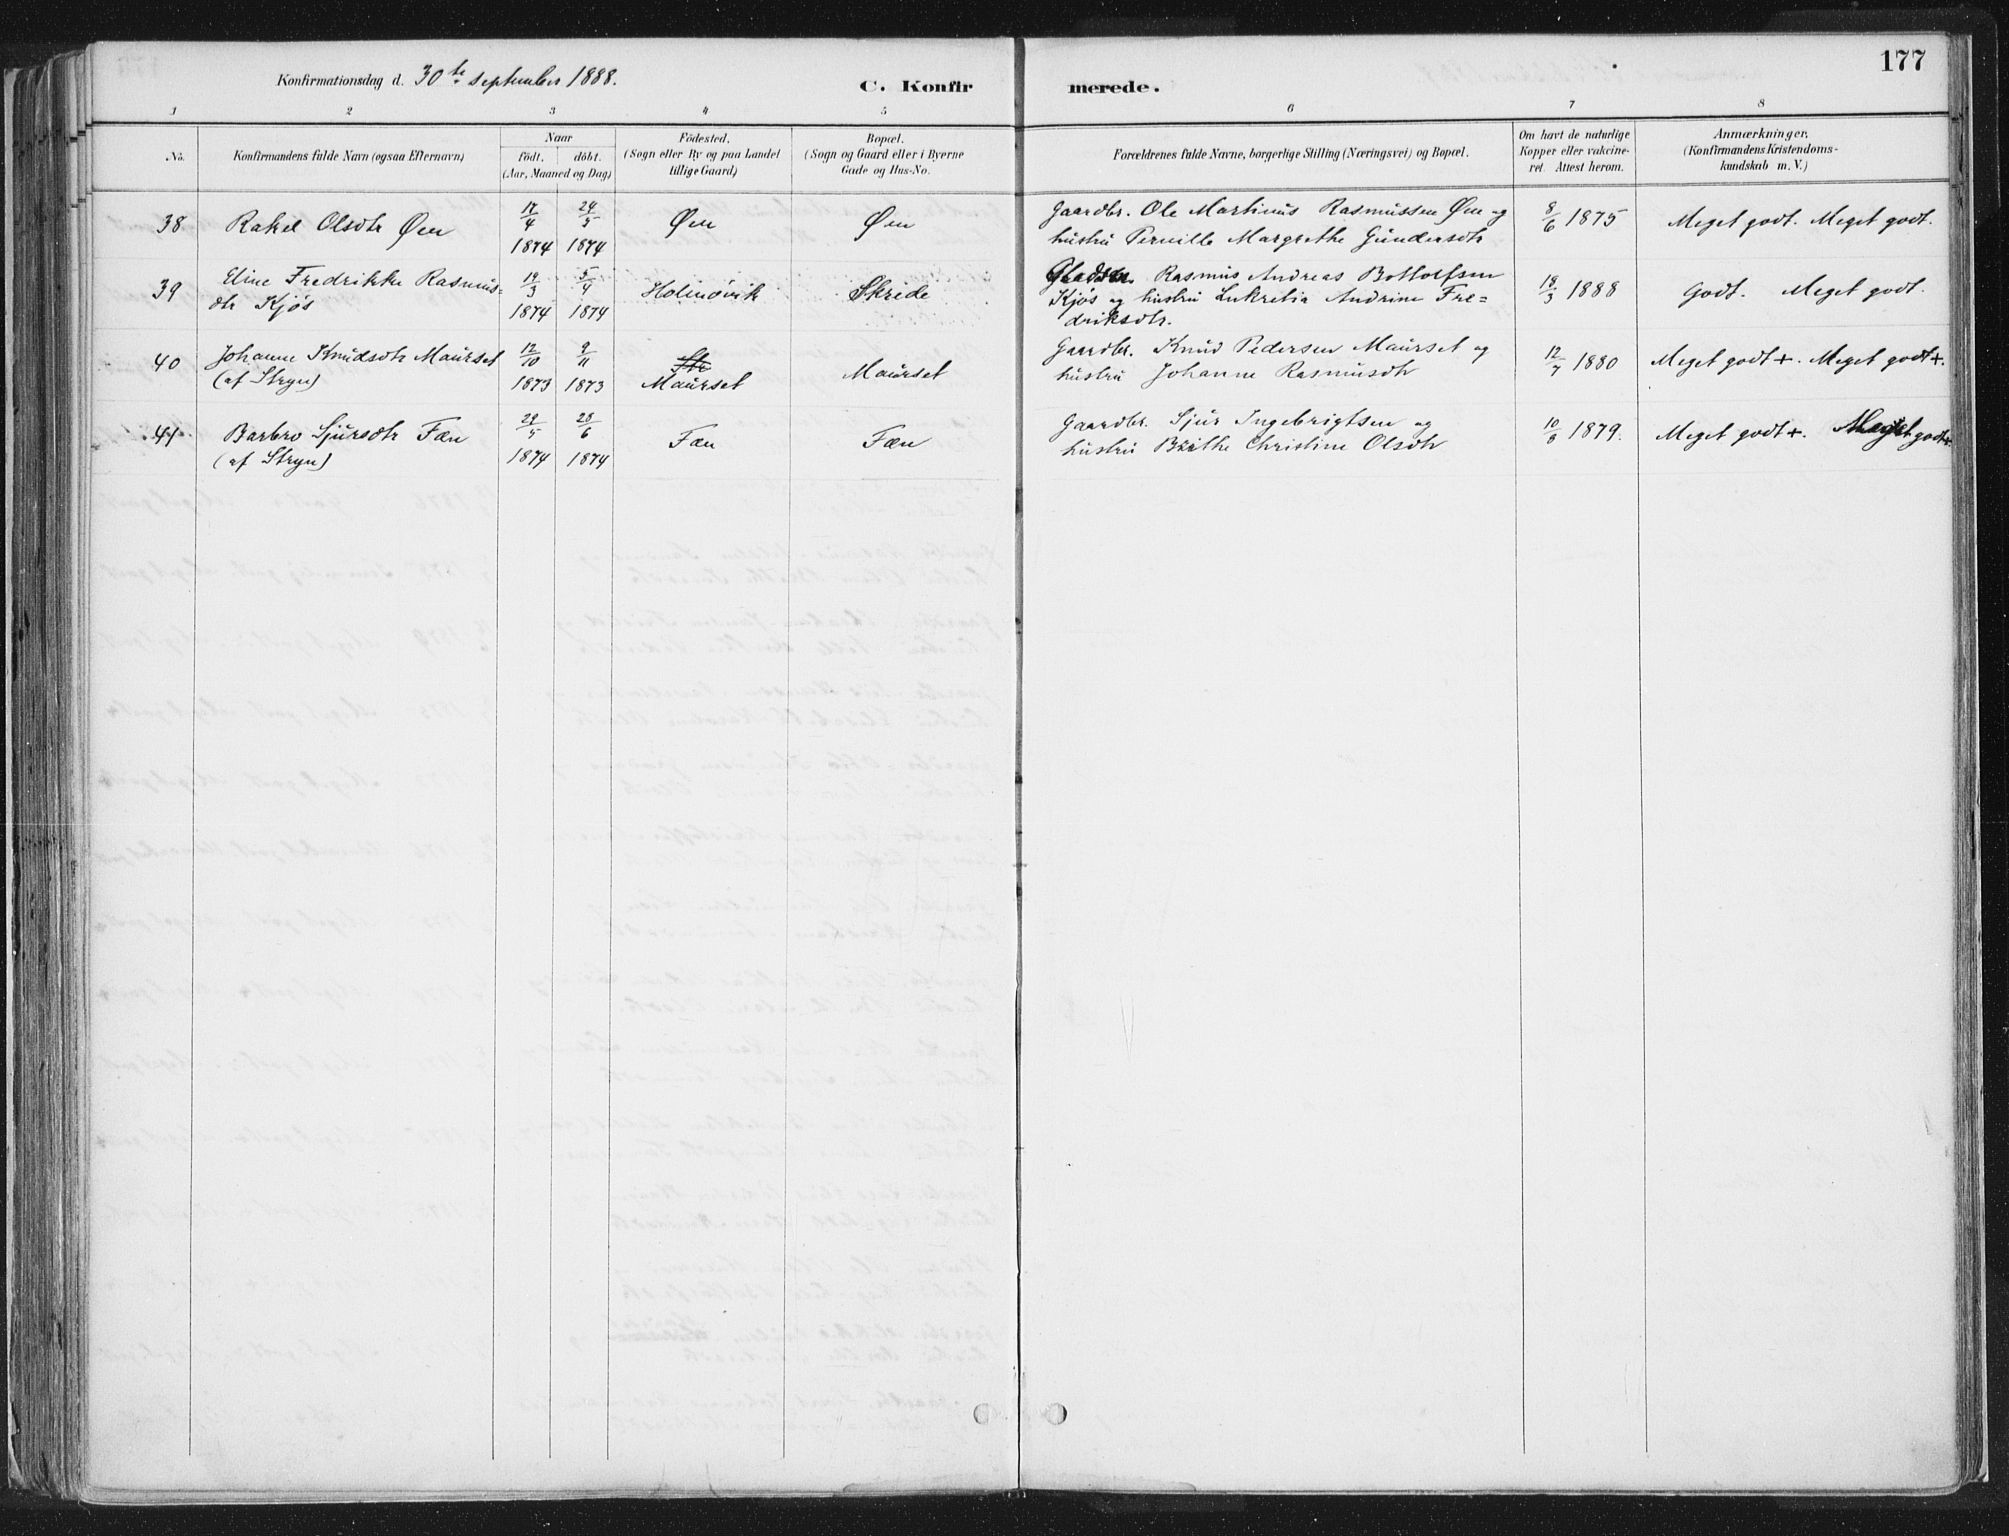 177
Konfirmationsdag d. 30te september 1888.
C. Konfir merede.
1 2 3 4 5 6 7 8
No.
Konfirmandens fulde Navn (ogsaa Efternavn)
Naar
födt. döbt.
(Aar, Maaned og Dag)
Födested.
(Sogn eller By og paa Landet
tillige Gaard)
Bopæl.
(Sogn og Gaard eller i Byerne
Gade og Hus-No.
Forældrenes fulde Navne, borgerlige Stilling (Næringsvei) og Bopæl.
Om havt de naturlige
Kopper eller vakcine-
ret. Attest herom.
Anmærkninger.
(Konfirmandens Kristendoms-
kundskab m. V.)
38 Rakel Olsdtr Øen 17/4 1874 24/5 1874 Øen Øen
Gaardbr. Ole Martinus Rasmussen Øen og
hustru Pernille Margrethe Gundersdtr
8/6 1875 Meget godt. Meget godt.
39 Eline Fredrikke Rasmus-
dtr Kjøs
19/3 1874 5/4 1874 Holmøvik Skride
Rasmus Andreas Bottolfsen
Kjøs og hustru Lukretia Andrine Fre-
driksdtr.
18/3 1888 Godt. Meget godt.
40 Johanne Knudsdtr Maurset
(af Stryn)
12/10 1873 9/11 1873 Str Maurset Maurset
Gaardbr. Knud Pedersen Maurset og
hustru Johanne Rasmusdtr
12/7 1880 Meget godt +. Meget godt +.
41 Barbro Sjursdtr Fæn
(af Stryn)
29/5 1874 28/6 1874 Fæn Fæn
Gaardbr. Sjur Ingebrigtsen og
hustru Birithe Christine Olsdtr
10/8 1879. Meget godt +. Meget godt +.